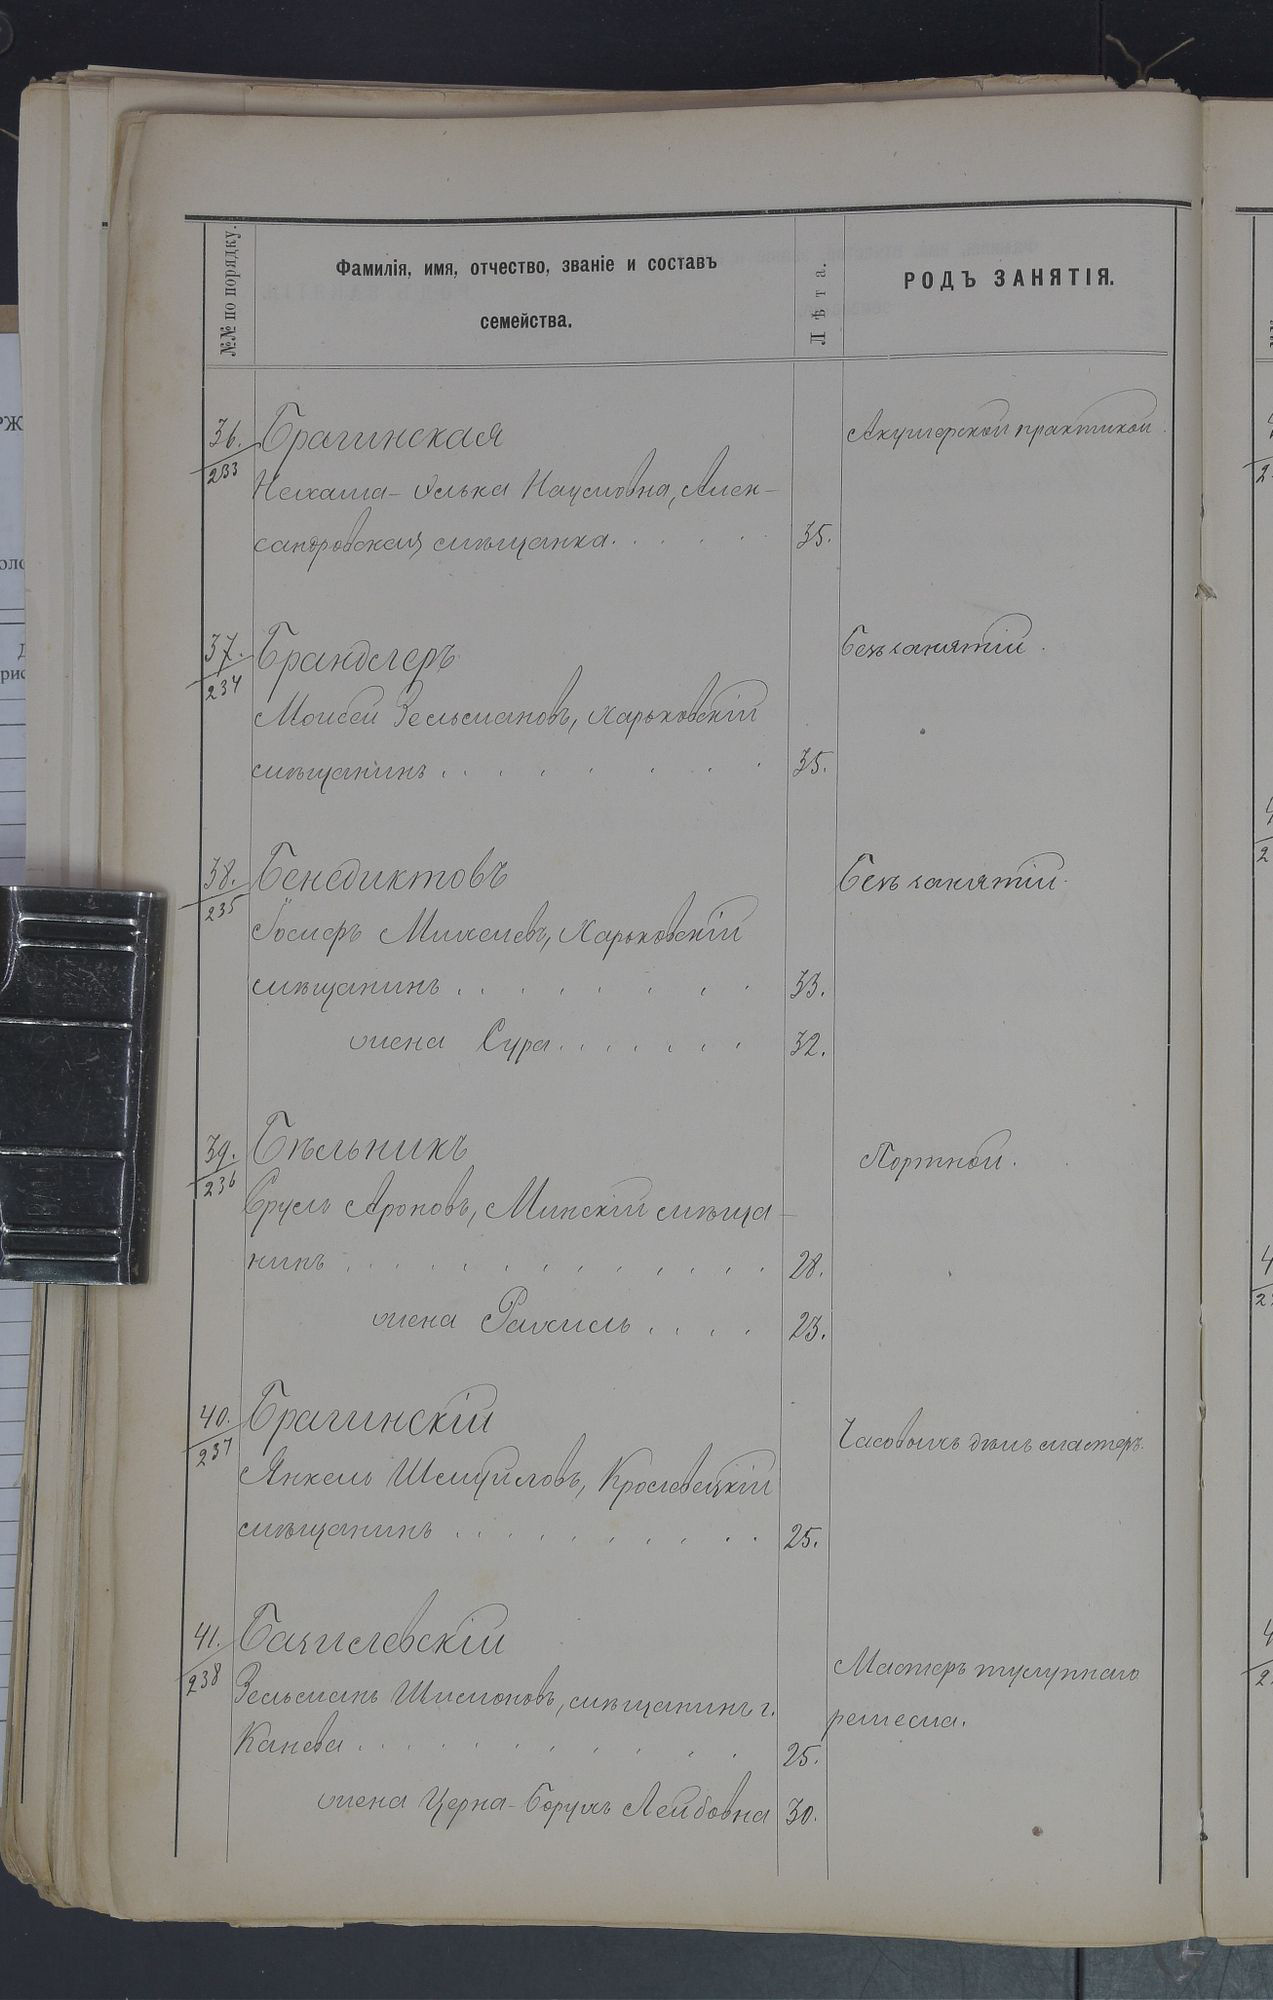 №№ по порядку.
Фамилія, имя, отчество, званіе и составъ
семейства.
Лѣта.
РОДЪ ЗАНЯТІЯ.
36. Брагинская Акушерской практикой.
233
Нехама-Элька Наумовна, Алек-
сандровская мѣщанка. . . . . . 35.
37. Брандлеръ Безъ занятій.
234
Моисей Зельмановъ, Харьковскій
мѣщанинъ . . . . . . . . 35.
38. Бенедиктовъ Безъ занятій.
235
Іосифъ Михелевъ, Харьковскій
мѣщанинъ . . . . . . . . 33.
жена Сура . . . . . . . 32.
39. Бѣльникъ Портной.
236
Сруль Ароновъ, Минскій мѣща-
нинъ . . . . . . . . . . . . 28.
жена Рахиль . . . . 23.
40. Брагинскій Часовыхъ дѣлъ мастеръ.
237
Янкель Шмуйловъ, Кролевецкій
мѣщанинъ . . . . . . . . . 25.
41. Базилевскій Мастеръ тулупнаго
238
Зельманъ Шимоновъ, мѣщанинъ г. ремесла.
Канева . . . . . . . . . . 25.
жена Церна-Борухъ Лейбовна 30.